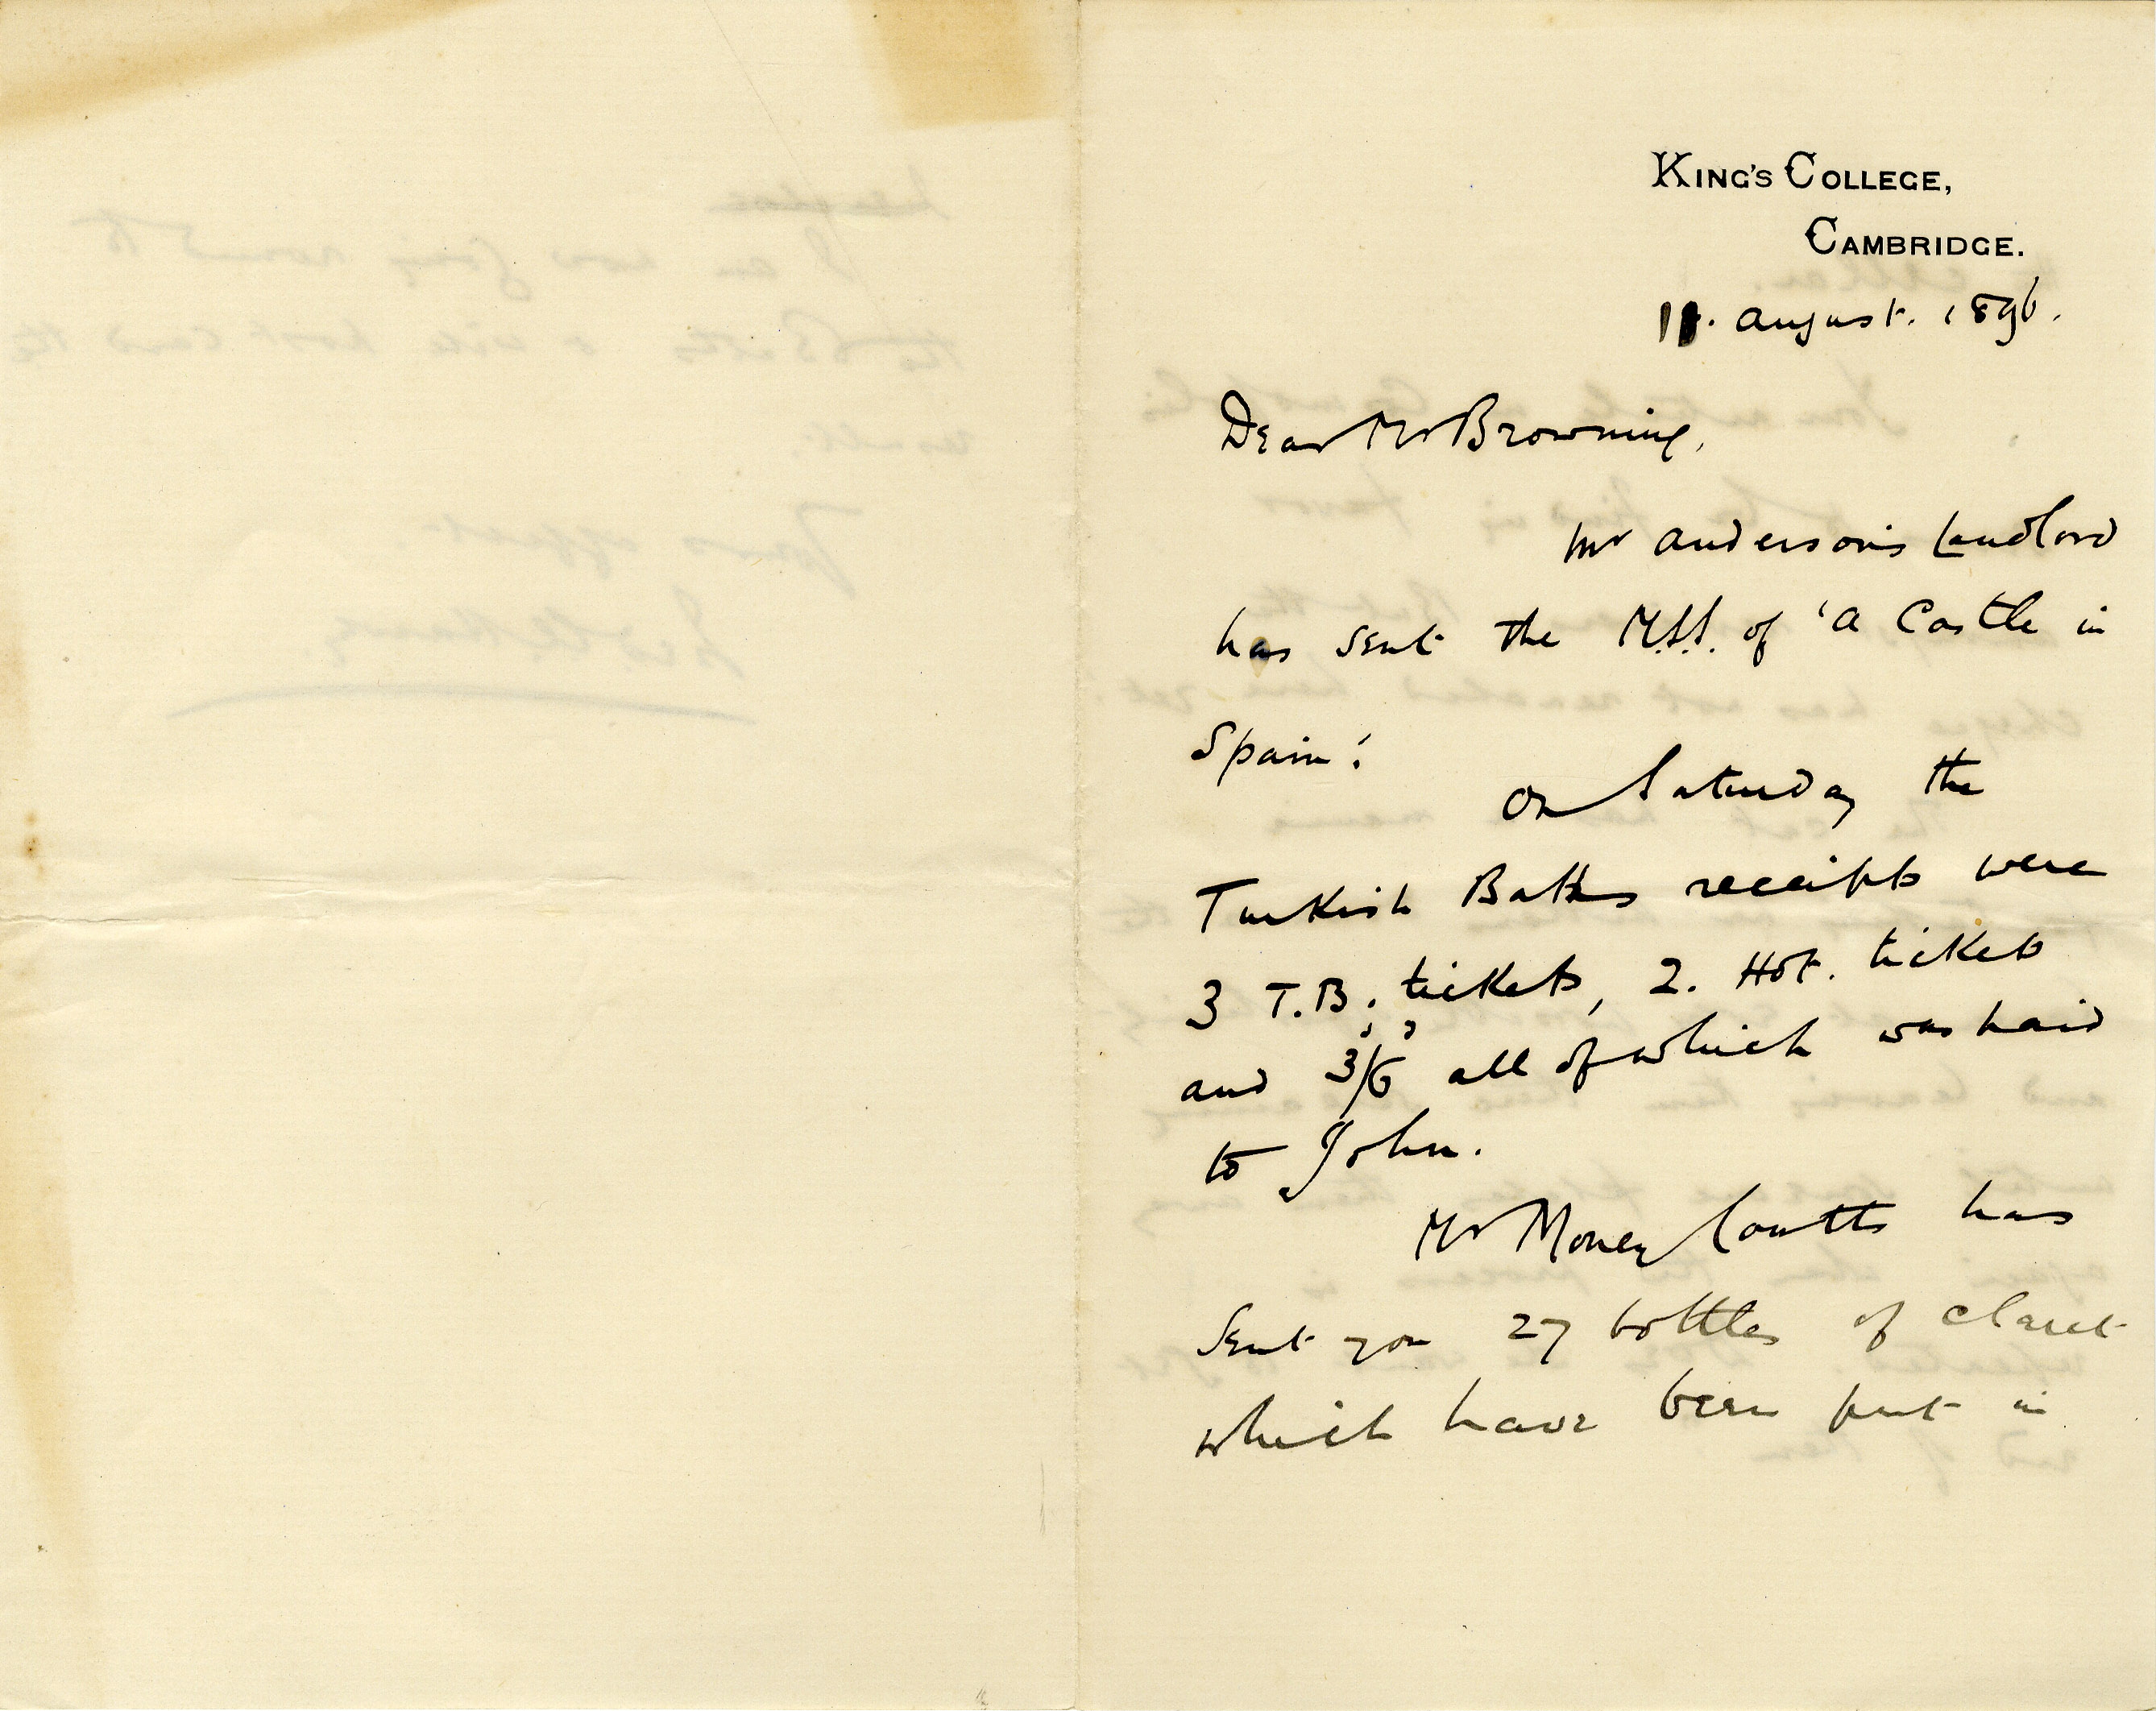 KING'S COLLEGE,
CAMBRIDGE.
11. August. 1896.
Dear Mr Browning,
Mr Anderson's Landlord
has sent the M.S.S. of 'A Castle in
Spain'.
On Saturday the
Turkish Baths receipts were
3 T.B. tickets, 2. Hot. tickets
and 3/6 all of which was paid
to John.
Mr Money Coutts has
sent you 27 bottles of claret
which have been put in